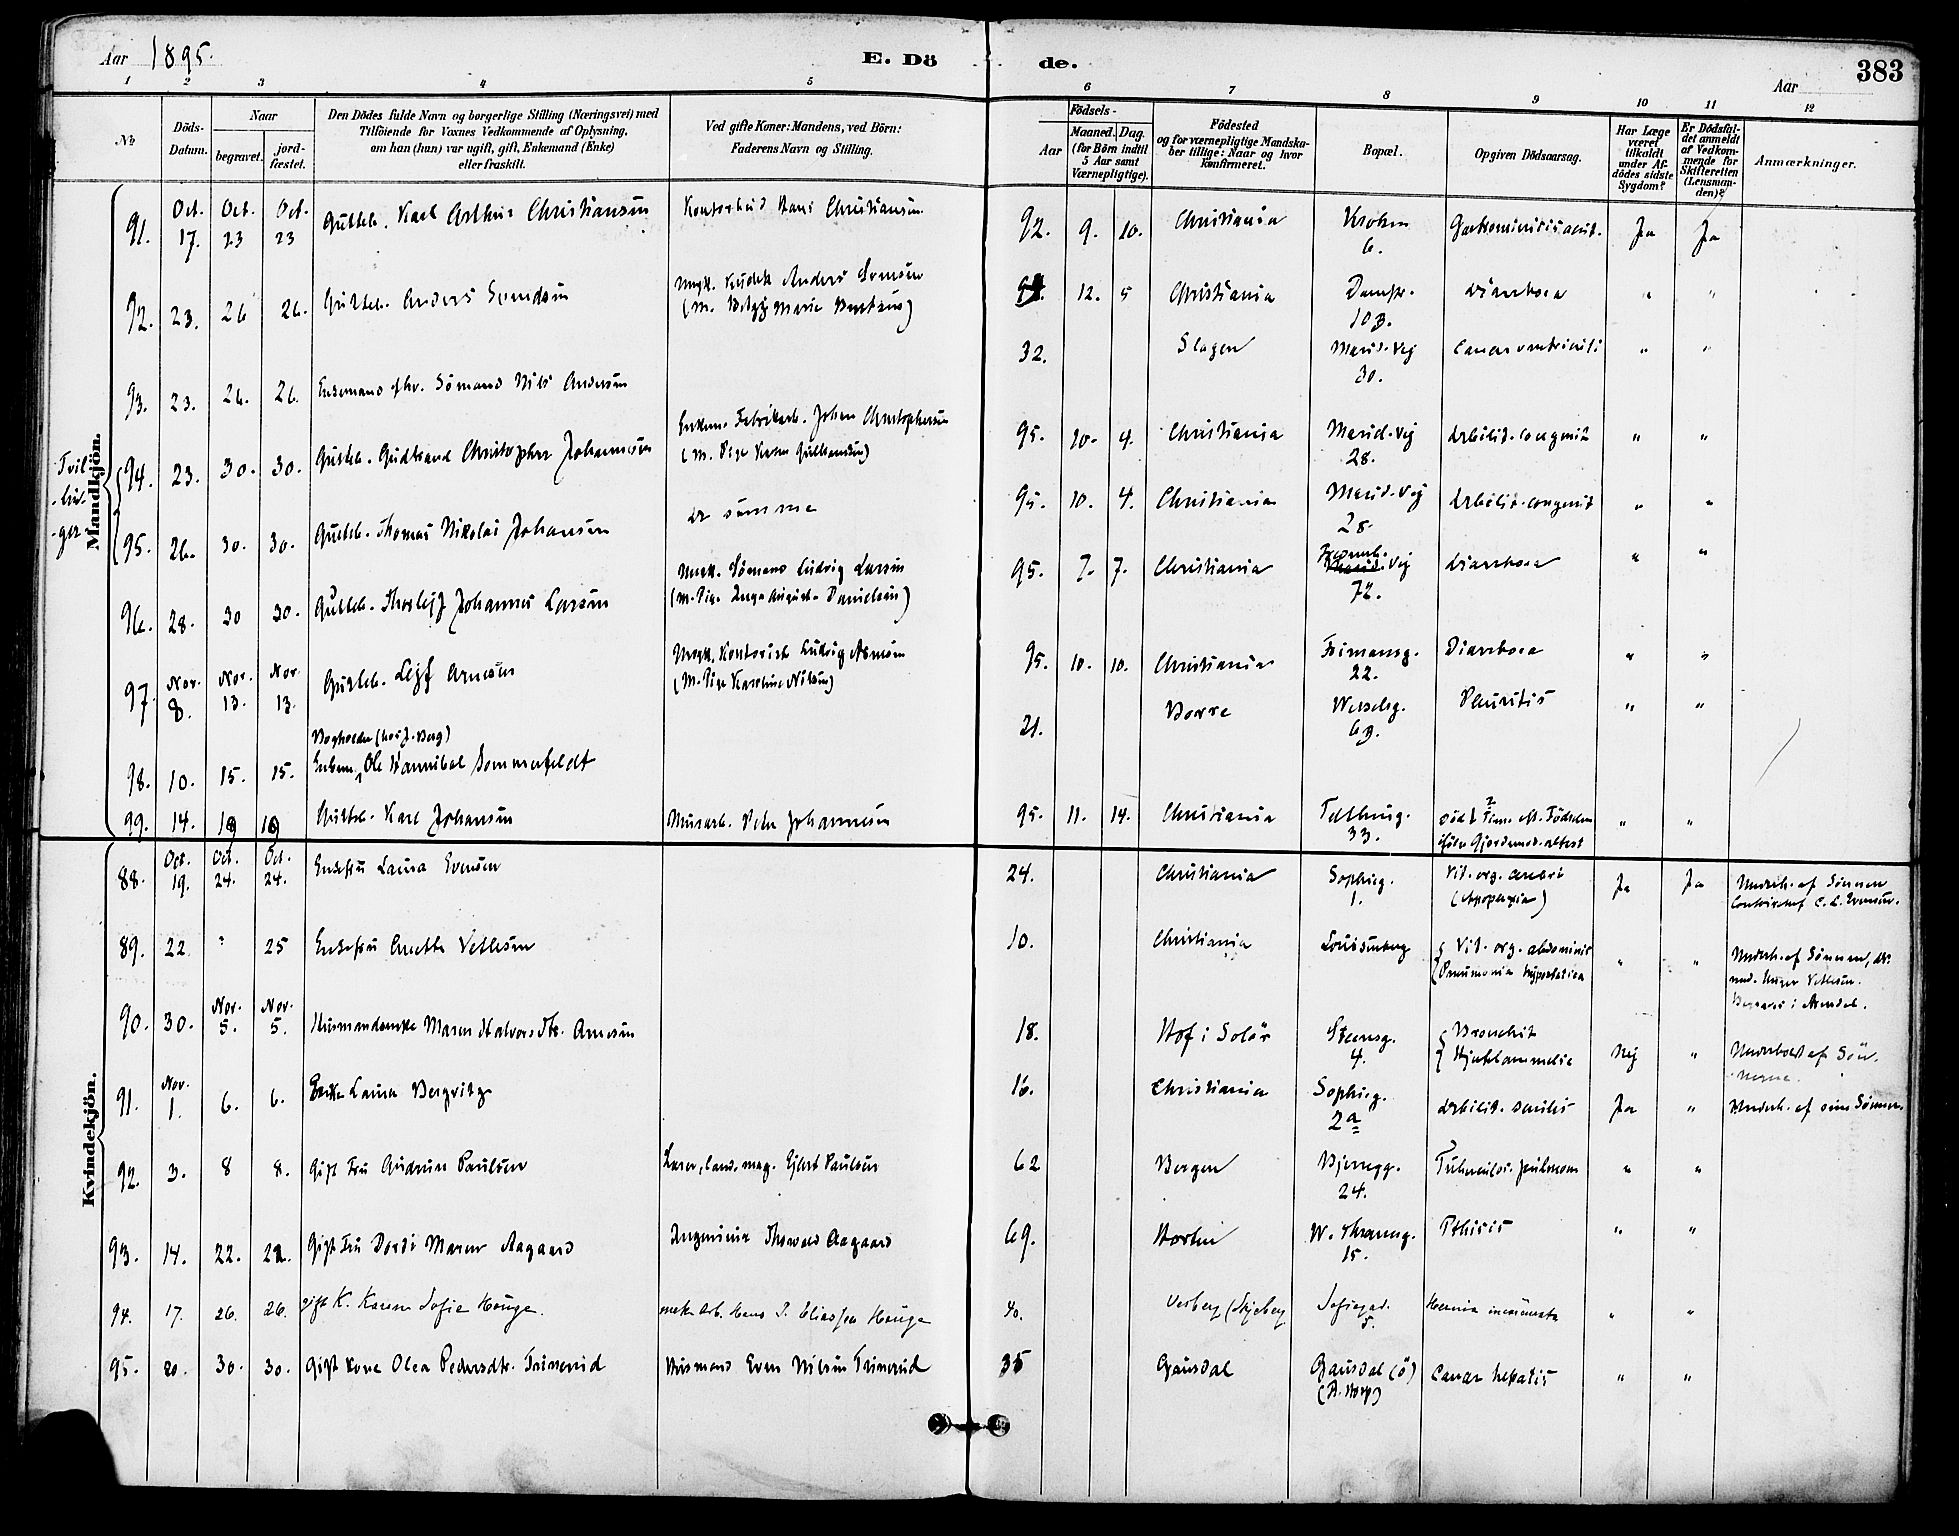 Aar 1895.
E. Dö de.
Aar
383
1 2 3 4 5 6 7 8 9 10 11 12
No
Döds-Datum.
Naar
begravet.
jordfæstet.
Den Dödes fulde Navn og borgerlige Stilling (Næringsvei) med
Tilföiende for Voxnes Vedkommende af Oplysning,
om han (hun) var ugift, gift, Enkemand (Enke)
eller fraskilt.
Ved gifte Koner: Mandens, ved Börn:
Faderens Navn og Stilling.
Födsels-
Aar
Maaned. Dag.
(for Börn indtil
5 Aar samt
Værnepligtige).
Födested
og for værnepligtige Mandska-
ber tillige: Naar og hvor
konfirmeret.
Bopæl.
Opgiven Dödsaarsag.
Har Læge
været
tilkaldt
under Af-
dödes sidste
Sygdom?
Er Dödsfal-
det anmeldt
af Vedkom-
mende for
Skifteretten
(Lensman-
den)?
Anmærkninger.
Mandkjön.
91. Oct. 17. Oct. 23 Oct. 23 Gutteb. Karl Arthur Christiansen Kontorbud Hans Christiansen 92. 9. 10. Christiania Krohsn 6. Ja Ja
92. 23. 26 26. Gutteb. Anders Svendsen Anders Svendsen
12. 5 Christiania Dampr. 103. Diarrhoea " "
93. 23. 26. 26. Sömand Nils Andersen 32. Slagen Marid. Vej 30. Cancer ventriculi " "
Tvil-
lin-
ger
94. 23. 30. 30. Gutteb. Gudbrand Christopher Johannesen Fabrikarb. Johan Christophersen
(M. Pige Karen Gulbrandsen) 95. 10. 4. Christiania Marid. Vej 28. Debilit. congenit " "
95. 26. 30. 30. Gutteb. Thomas Nikolai Johansen de samme 95. 10. 4. Christiania Marid. Vej 28. Debilit. congenit " "
96. 28. 30 30. Gutteb. Thorleif Johannes Larsen Sömand Ludvig Larsen
(M. Pige Inga August. Danielsen) 95. 7. 7. Christiania Vej 72. Diarrhoea " "
97. Nov. 8. Nov. 13. Nov. 13. Gutteb. Leif Arnesen Kontorist Ludvig Arnesen
(M. Pige Karoline Nilsen) 95. 10. 10. Christiania Frimansg. 22. Diarrhoea " "
Bogholder (hos J. Berg)
98. 10. 15. 15. Ole Hannibal Sommerfeldt 21. Borre Wesselsg. Pleuritis " "
99. 14. 19 19 Gutteb. Karl Johansen Murarb. Peter Johannesen 95. 11. 14. Christiania Telthusg. 33. död 2 Tim. eft. Födselen
ifölge Gjordemod. attest " "
Kvindekjön.
88. Oct. 19. Oct. 24. Oct. 24. Enkefru Laura Evensen 24. Christiania Sophieg. 1. Vit. org. cerebri
(Apoplexia) Ja Ja Underh. af Sönnen
89. 22 ? 25 Enkefru Anette Vetlesen 10. Christiania Louisenberg Vit. org. abdominis
Pneumonia hypostatica " " Underh. af Sönnen, dr.
med. Unger Vetlesen.
Begraves i Arendal.
90. 30. Nov. 5. Nov. 5. Husmandsenke Maren Halvorsdtr. Arnesen 18. Hof i Solör Steensg. 4. Bronchit
Hjertelammelse Nej " Underholdt af Sön-
nerne.
91. Nov. 1. 6. 6. Enke Laura Bergwitz 16. Christiania Sophieg. 2a Debilit. senilis Ja " Underh. af sine Sönner.
92. 3. 8 8. Gift Fru Gudrun Paulsen Lærer, cand. mag. Ejlert Paulsen 62 Bergen Bjerregg. 24. Tuberculos. pulmon " "
93. 14. 22. 22. Gift Fru Dordi Maren Aagaard Ingeniör Thorvald Aagaard 69. Horten W. Thranesg. 15. Pthisis " "
94. 17. 26. 26. gift K. Karen Sofie Hauge. Arb. Hans P. Eliassen Hauge 40. (Skjeberg Sofiegad. 5. Hernia " "
95. 20. 30. 30. Gift Kone Olea Pedersdtr. Trinerud Husmand Even Nilsen Trinerud 35 Gausdal Gausdal (ö) Cancer hepatis " "